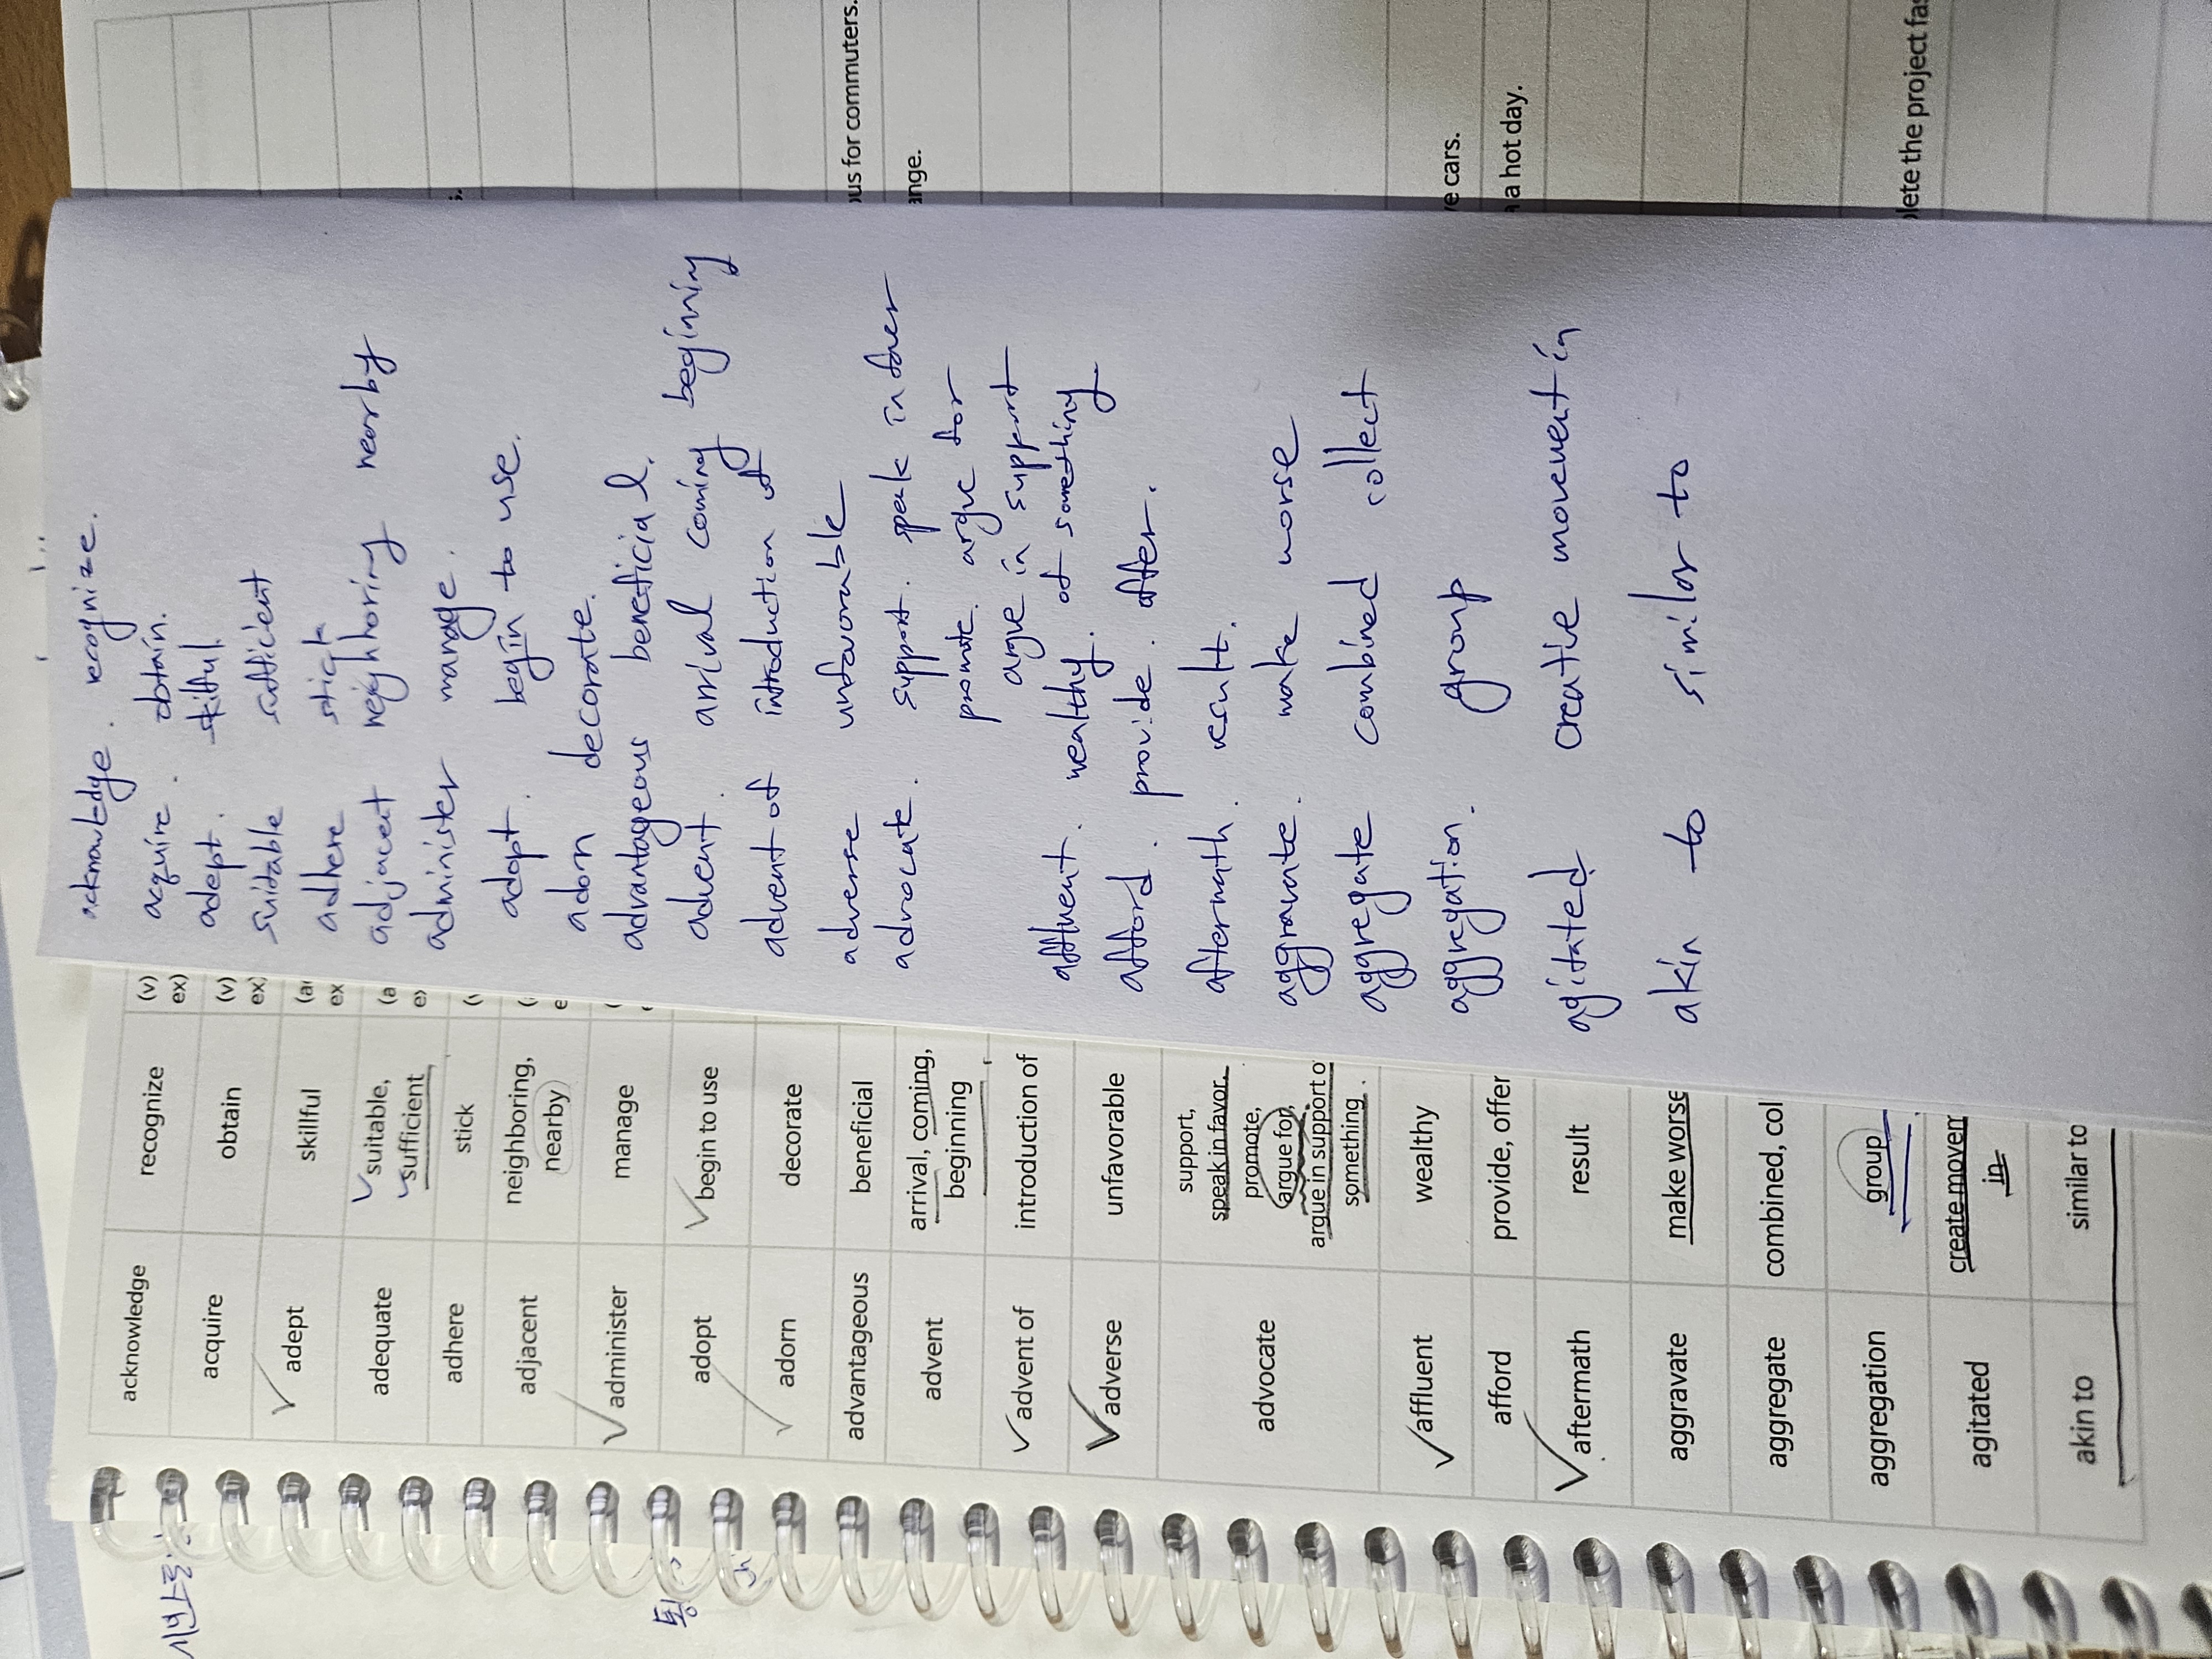 acknowledge. recognize.
acquire. obtain.
adept. skilful.
suitable sufficient
adhere stick
adjacent neighboring nearby
administer manage.
adopt. begin to use.
adorn decorate.
advantageous beneficial.
advent. arrival coming beginning
advent of introduction of
adverse unfavorable
advocate. support. speak in faver
promote. argue for
argue in support
of something
affluent. wealthy.
afford. provide. offer.
aftermath. result.
aggravate. make worse
aggregate combined collect
aggregation. group
agitated creatie movement in
akin to similar to
acknowledge recognize (v)
ex)
acquire obtain (v)
ex)
adept skillful
ex
adequate suitable,
sufficient
adhere stick
adjacent neighboring,
nearby
administer manage
adopt begin to use
adorn decorate
advantageous beneficial
advent arrival, coming,
beginning
advent of introduction of
adverse unfavorable
advocate support,
speak in favor,
promote,
argue for,
argue in support o
something
affluent wealthy
afford provide, offer
aftermath result
aggravate make worse
aggregate combined, col
aggregation group
agitated create movem
in
akin to similar to
us for commuters.
ange.
e cars.
a hot day.
lete the project fa